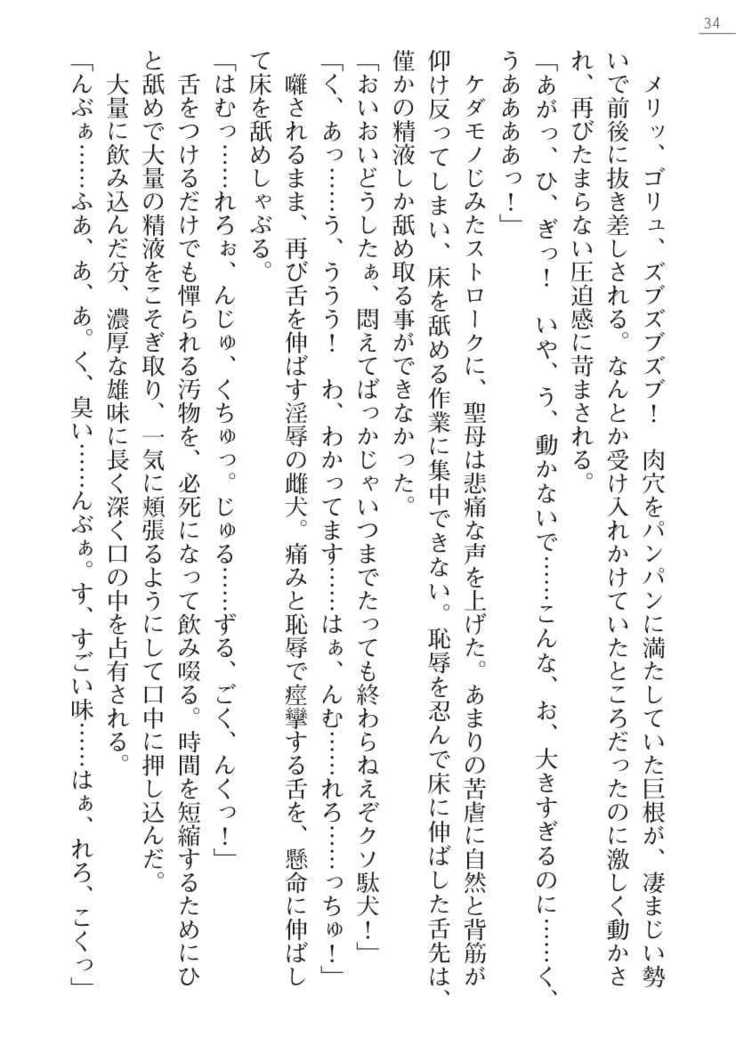 34
メリッ、ゴリュ、ズブズブズブ！　肉穴をパンパンに満たしていた巨根が、凄まじい勢
いで前後に抜き差しされる。なんとか受け入れかけていたところだったのに激しく動かさ
れ、再びたまらない圧迫感に苛まされる。
「あがっ、ひ、ぎっ！　いや、う、動かないで……こんな、お、大きすぎるのに……く、
うああああっ！」
ケダモノじみたストロークに、聖母は悲痛な声を上げた。あまりの苦虐に自然と背筋が
仰け反ってしまい、床を舐める作業に集中できない。恥辱を忍んで床に伸ばした舌先は、
僅かの精液しか舐め取る事ができなかった。
「おいおいどうしたぁ、悶えてばっかじゃいつまでたっても終わらねえぞクソ駄犬！」
「く、あっ……う、ううう！　わ、わかってます……はぁ、んむ……れろ……っちゅ！」
囃されるまま、再び舌を伸ばす淫辱の雌犬。痛みと恥辱で痙攣する舌を、懸命に伸ばし
て床を舐めしゃぶる。
「はむっ……れろぉ、んじゅ、くちゅっ。じゅる……ずる、ごく、んくっ！」
舌をつけるだけでも憚られる汚物を、必死になって飲み啜る。時間を短縮するためにひ
と舐めで大量の精液をこそぎ取り、一気に頬張るようにして口中に押し込んだ。
大量に飲み込んだ分、濃厚な雄味に長く深く口の中を占有される。
「んぶぁ……ふあ、あ、あ。く、臭い……んぶぁ。す、すごい味……はぁ、れろ、こくっ」